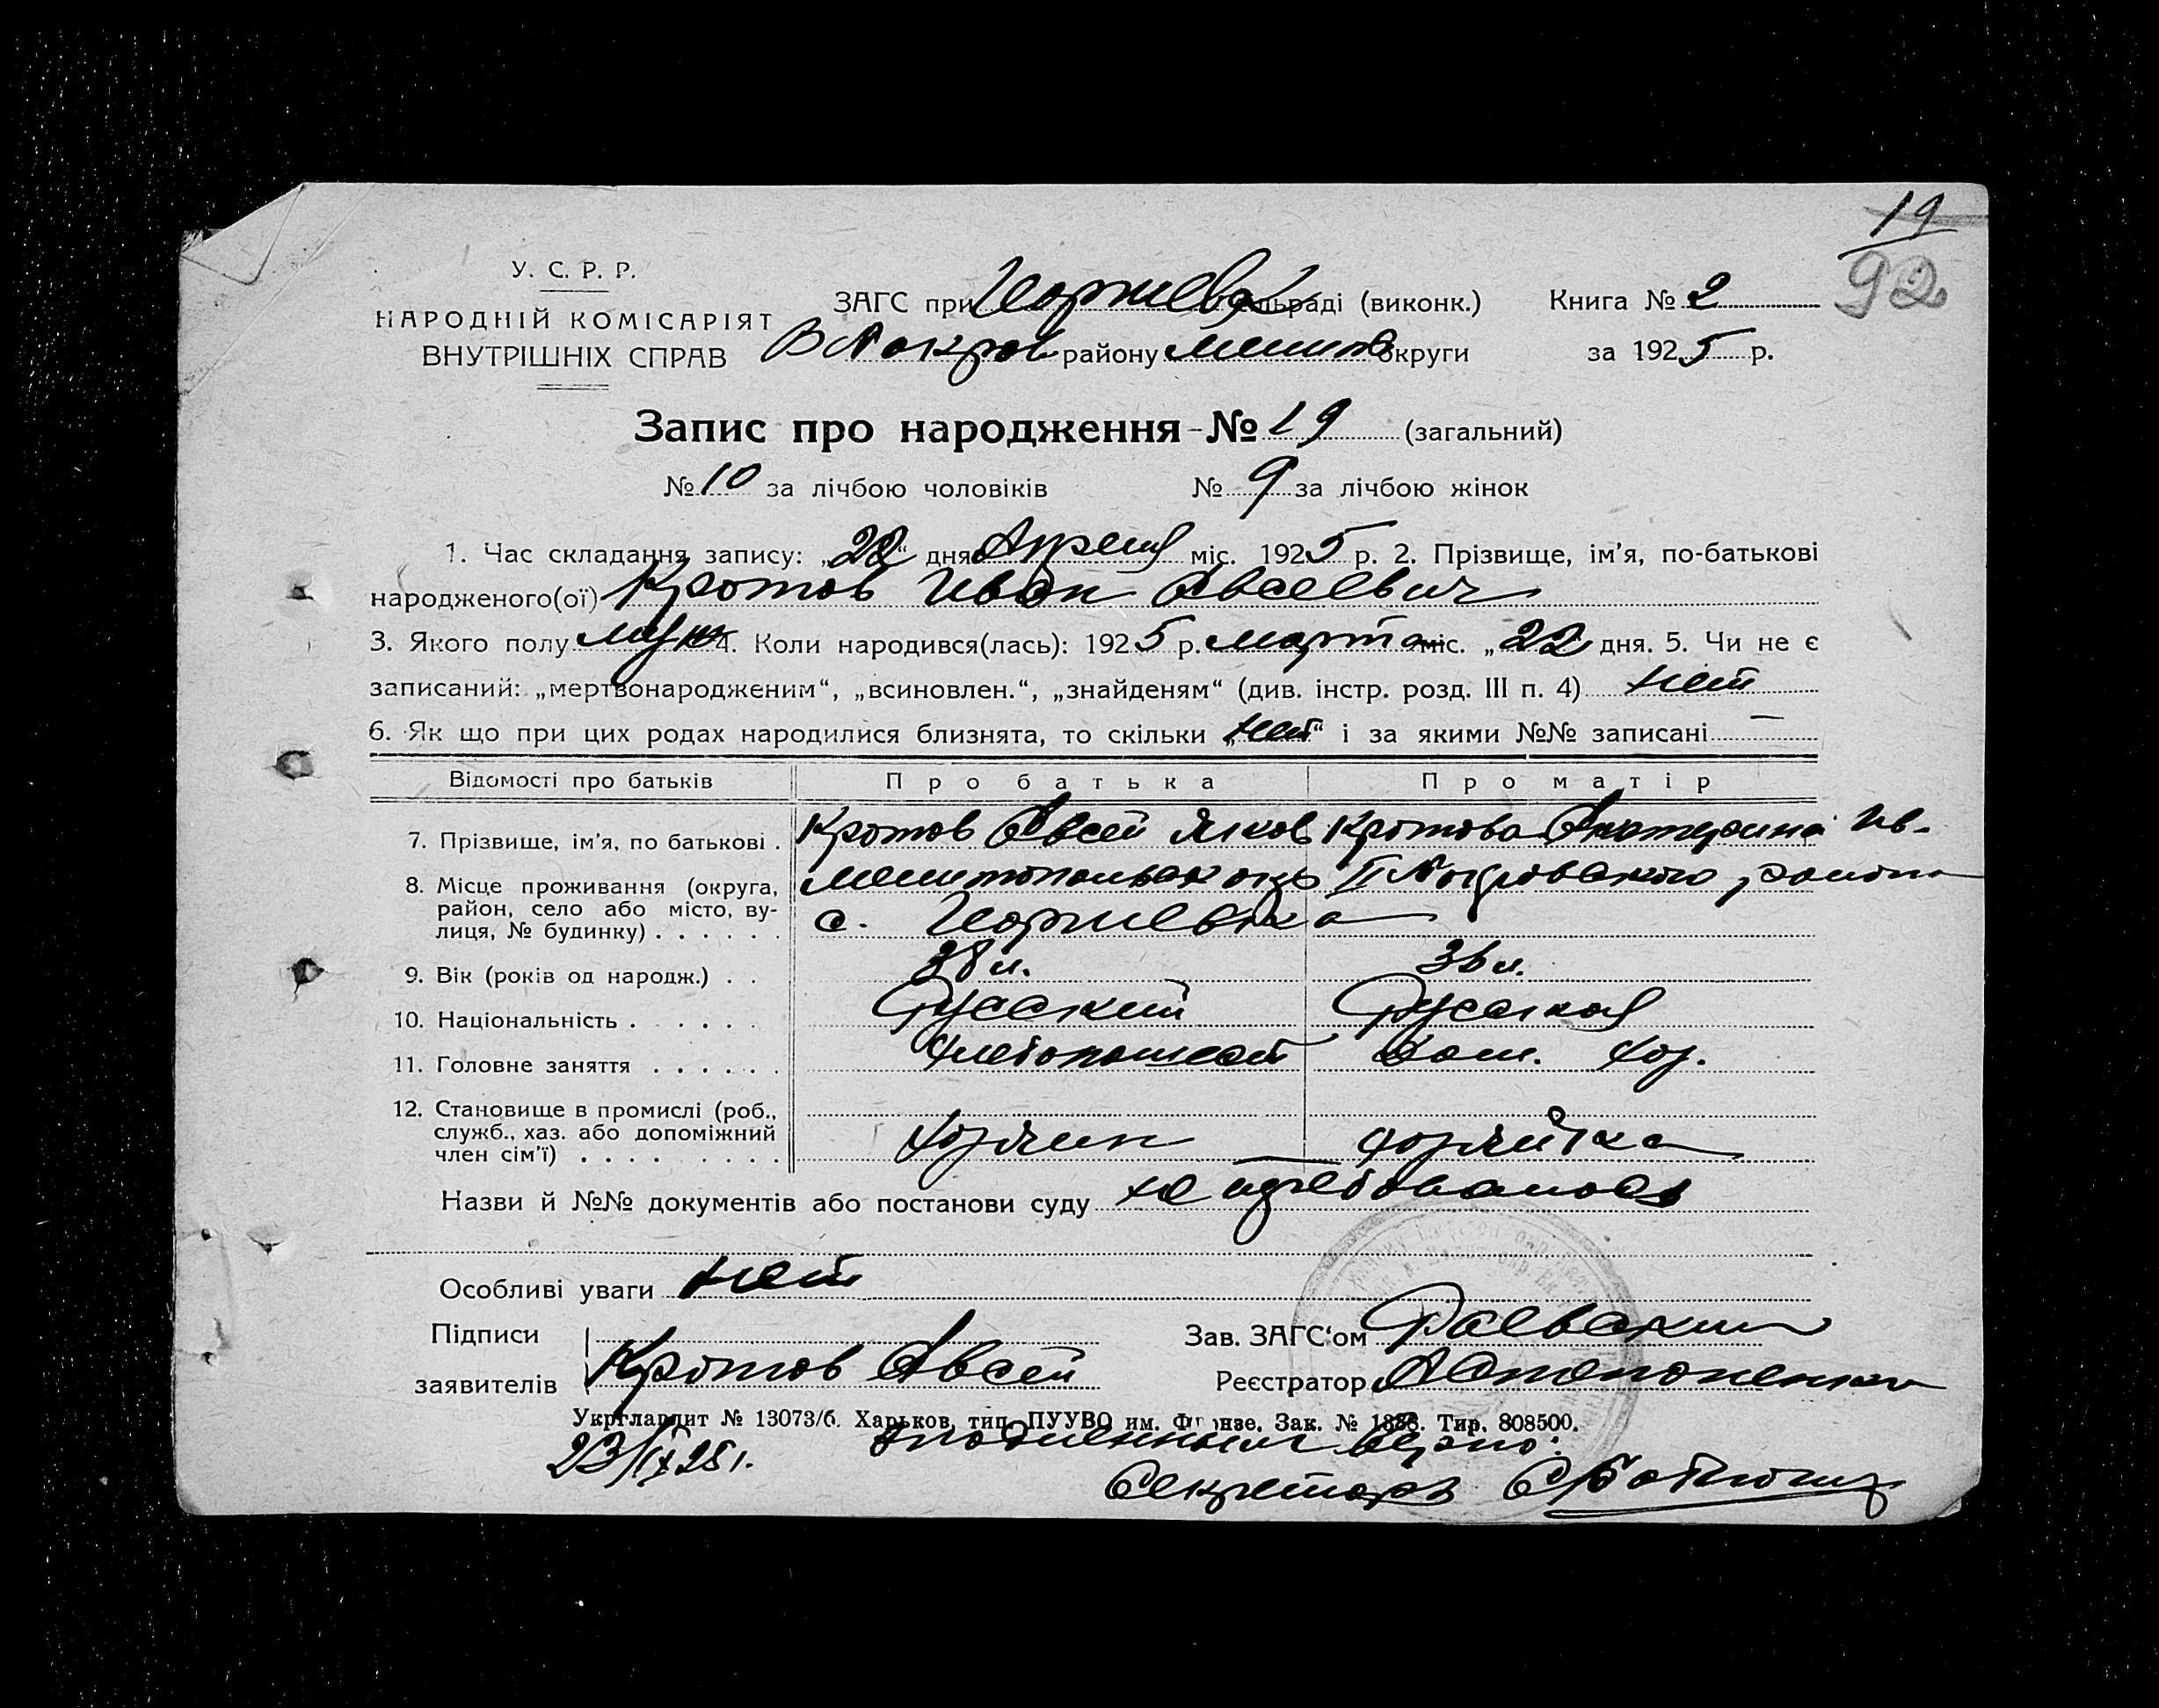 19
92
У. С. Р. Р.
НАРОДНІЙ КОМІСАРІЯТ
ВНУТРІШНІХ СПРАВ
ЗАГС при сільраді (виконк.)
району округи
Книга № 2
за 1925 р.
Запис про народження № 19 (загальний)
№ 10 за лічбою чоловіків № 9 за лічбою жінок
1. Час складання запису: „22“ дня Апреля міс. 1925 р. 2. Прізвище, ім'я, по-батькові
народженого(ої) Кротов Иван Авсеевич
3. Якого полу муж 4. Коли народився(лась): 1925 р. марта міс. „22 дня. 5. Чи не є
записаний: „мертвонародженим“, „всиновлен.“, „знайденям“ (див. інстр. розд. III п. 4) нет
6. Як що при цих родах народилися близнята, то скільки „нет“ і за якими №№ записані —
Відомості про батьків Про батька Про матір
7. Прізвище, ім'я, по батькові . Кротов Авсей Яков Кротова Екатерина Ив.
8. Місце проживання (округа, район, село або місто, вулиця, № будинку) . . . . . . района
с.
9. Вік (років од народж.) . . 38 л. 36 л.
10. Національність . . . . . . Русский Русская
11. Головне заняття . . . . . . Хлебопашест Дом. хоз.
12. Становище в промислі (роб.,
служб., хаз. або допоміжний
член сім'ї) . . . . . . . . . хозяин хозяйка
Назви й №№ документів або постанови суду не требовалось
Особливі уваги нет
Підписи
заявителів Кротов Авсей
Зав. ЗАГС'ом Раевский
Реєстратор
Укрглавлит № 13073/6. Харьков, тип. ПУУВО им. Фрунзе. Зак. № 1388. Тир. 808500.
23/IX 25 г. С подлинным верно:
Секретарь